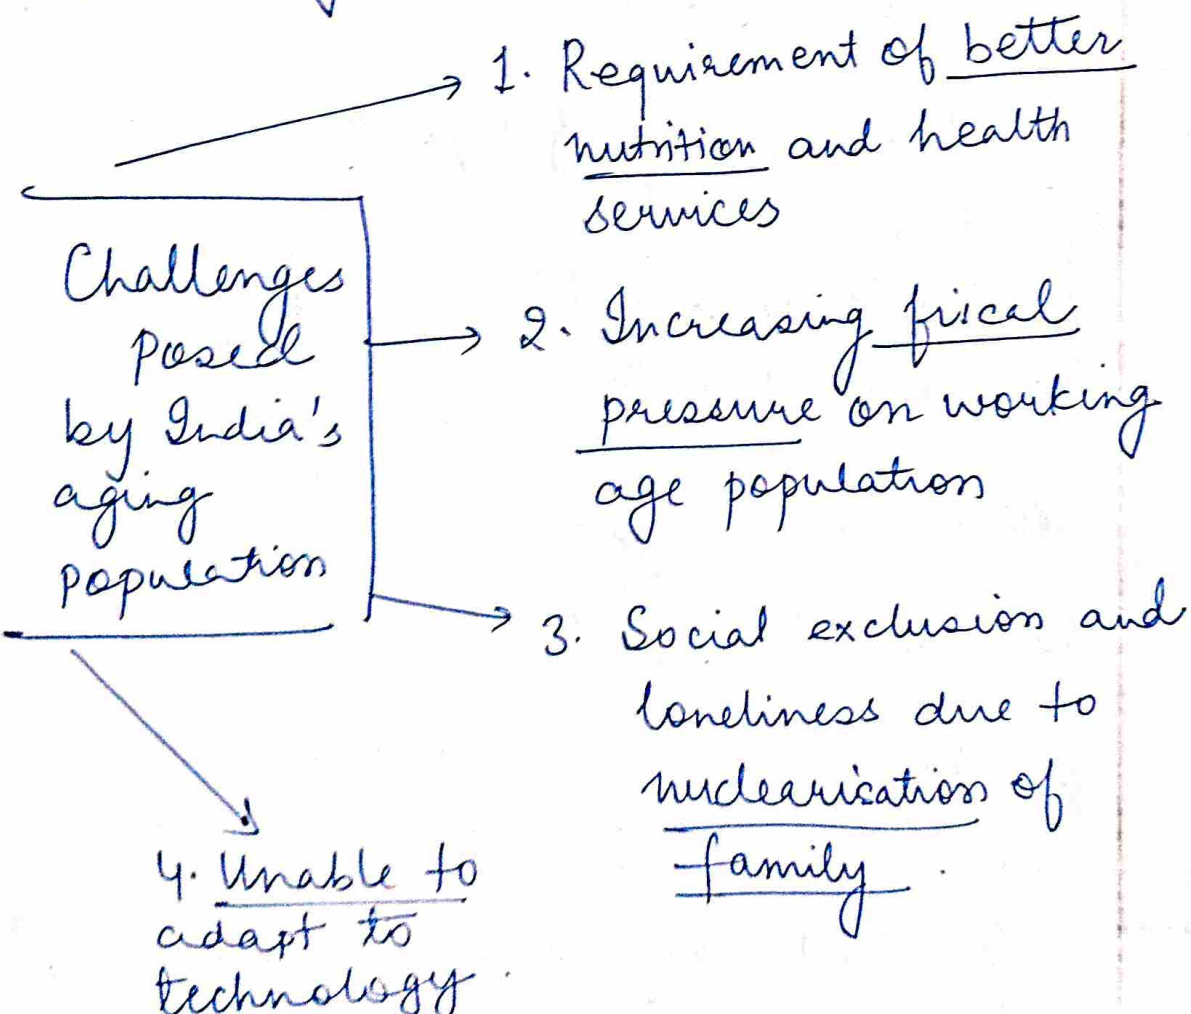 Challenges
posed
by India's
aging
population
1. Requirement of better
nutrition and health
services
2. Increasing fiscal
pressure on working
age population
3. Social exclusion and
loneliness due to
nuclearisation of
family.
4. Unable to
adapt to
technology.